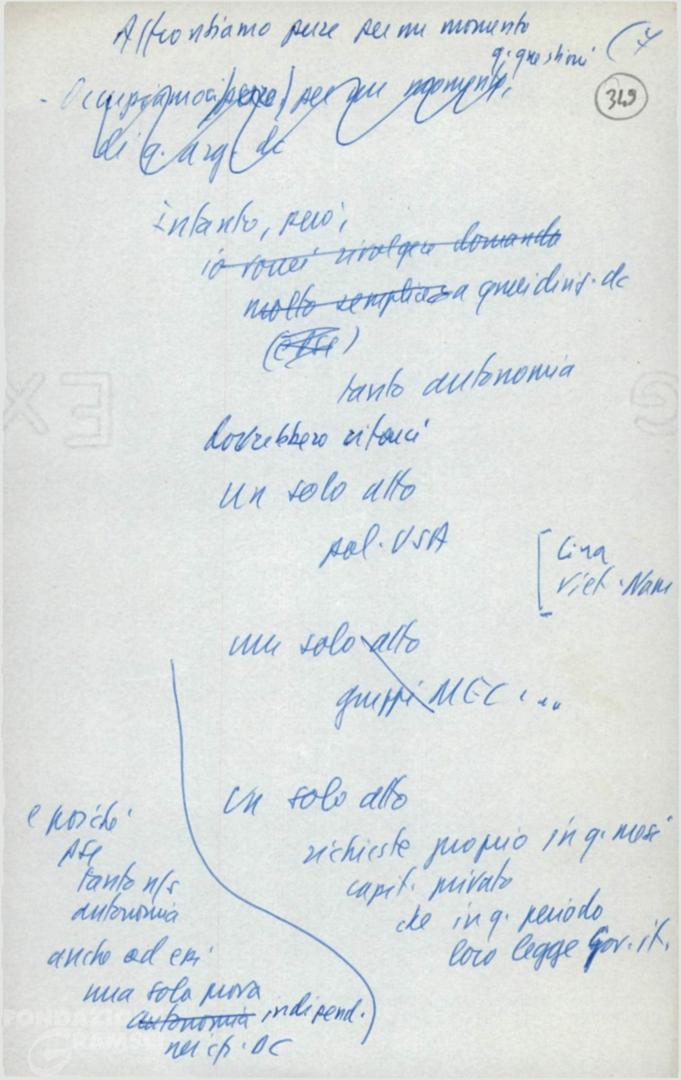 Affrontiamo pure per un momento
q. questioni
(7
349
- Occupiamoci pure per un momento,
di q. arg. dc
intanto, però,
io vorrei rivolgere domanda
molto semplice a quei dirig. dc
tanto autonomia
dovrebbero citarci
un solo atto
pol. USA
[Cina
Viet-Nam
un solo atto
gruppi MEC...
un solo atto
richieste proprio in q. mesi
capit. privato
che in q. periodo
loro legge Gov. it.
e poiché
PSI
tanto n/s
autonomia
anche ad essi
una sola prova
autonomia indipend.
nei cfr. DC
FONDAZIONE
GRAMSCI